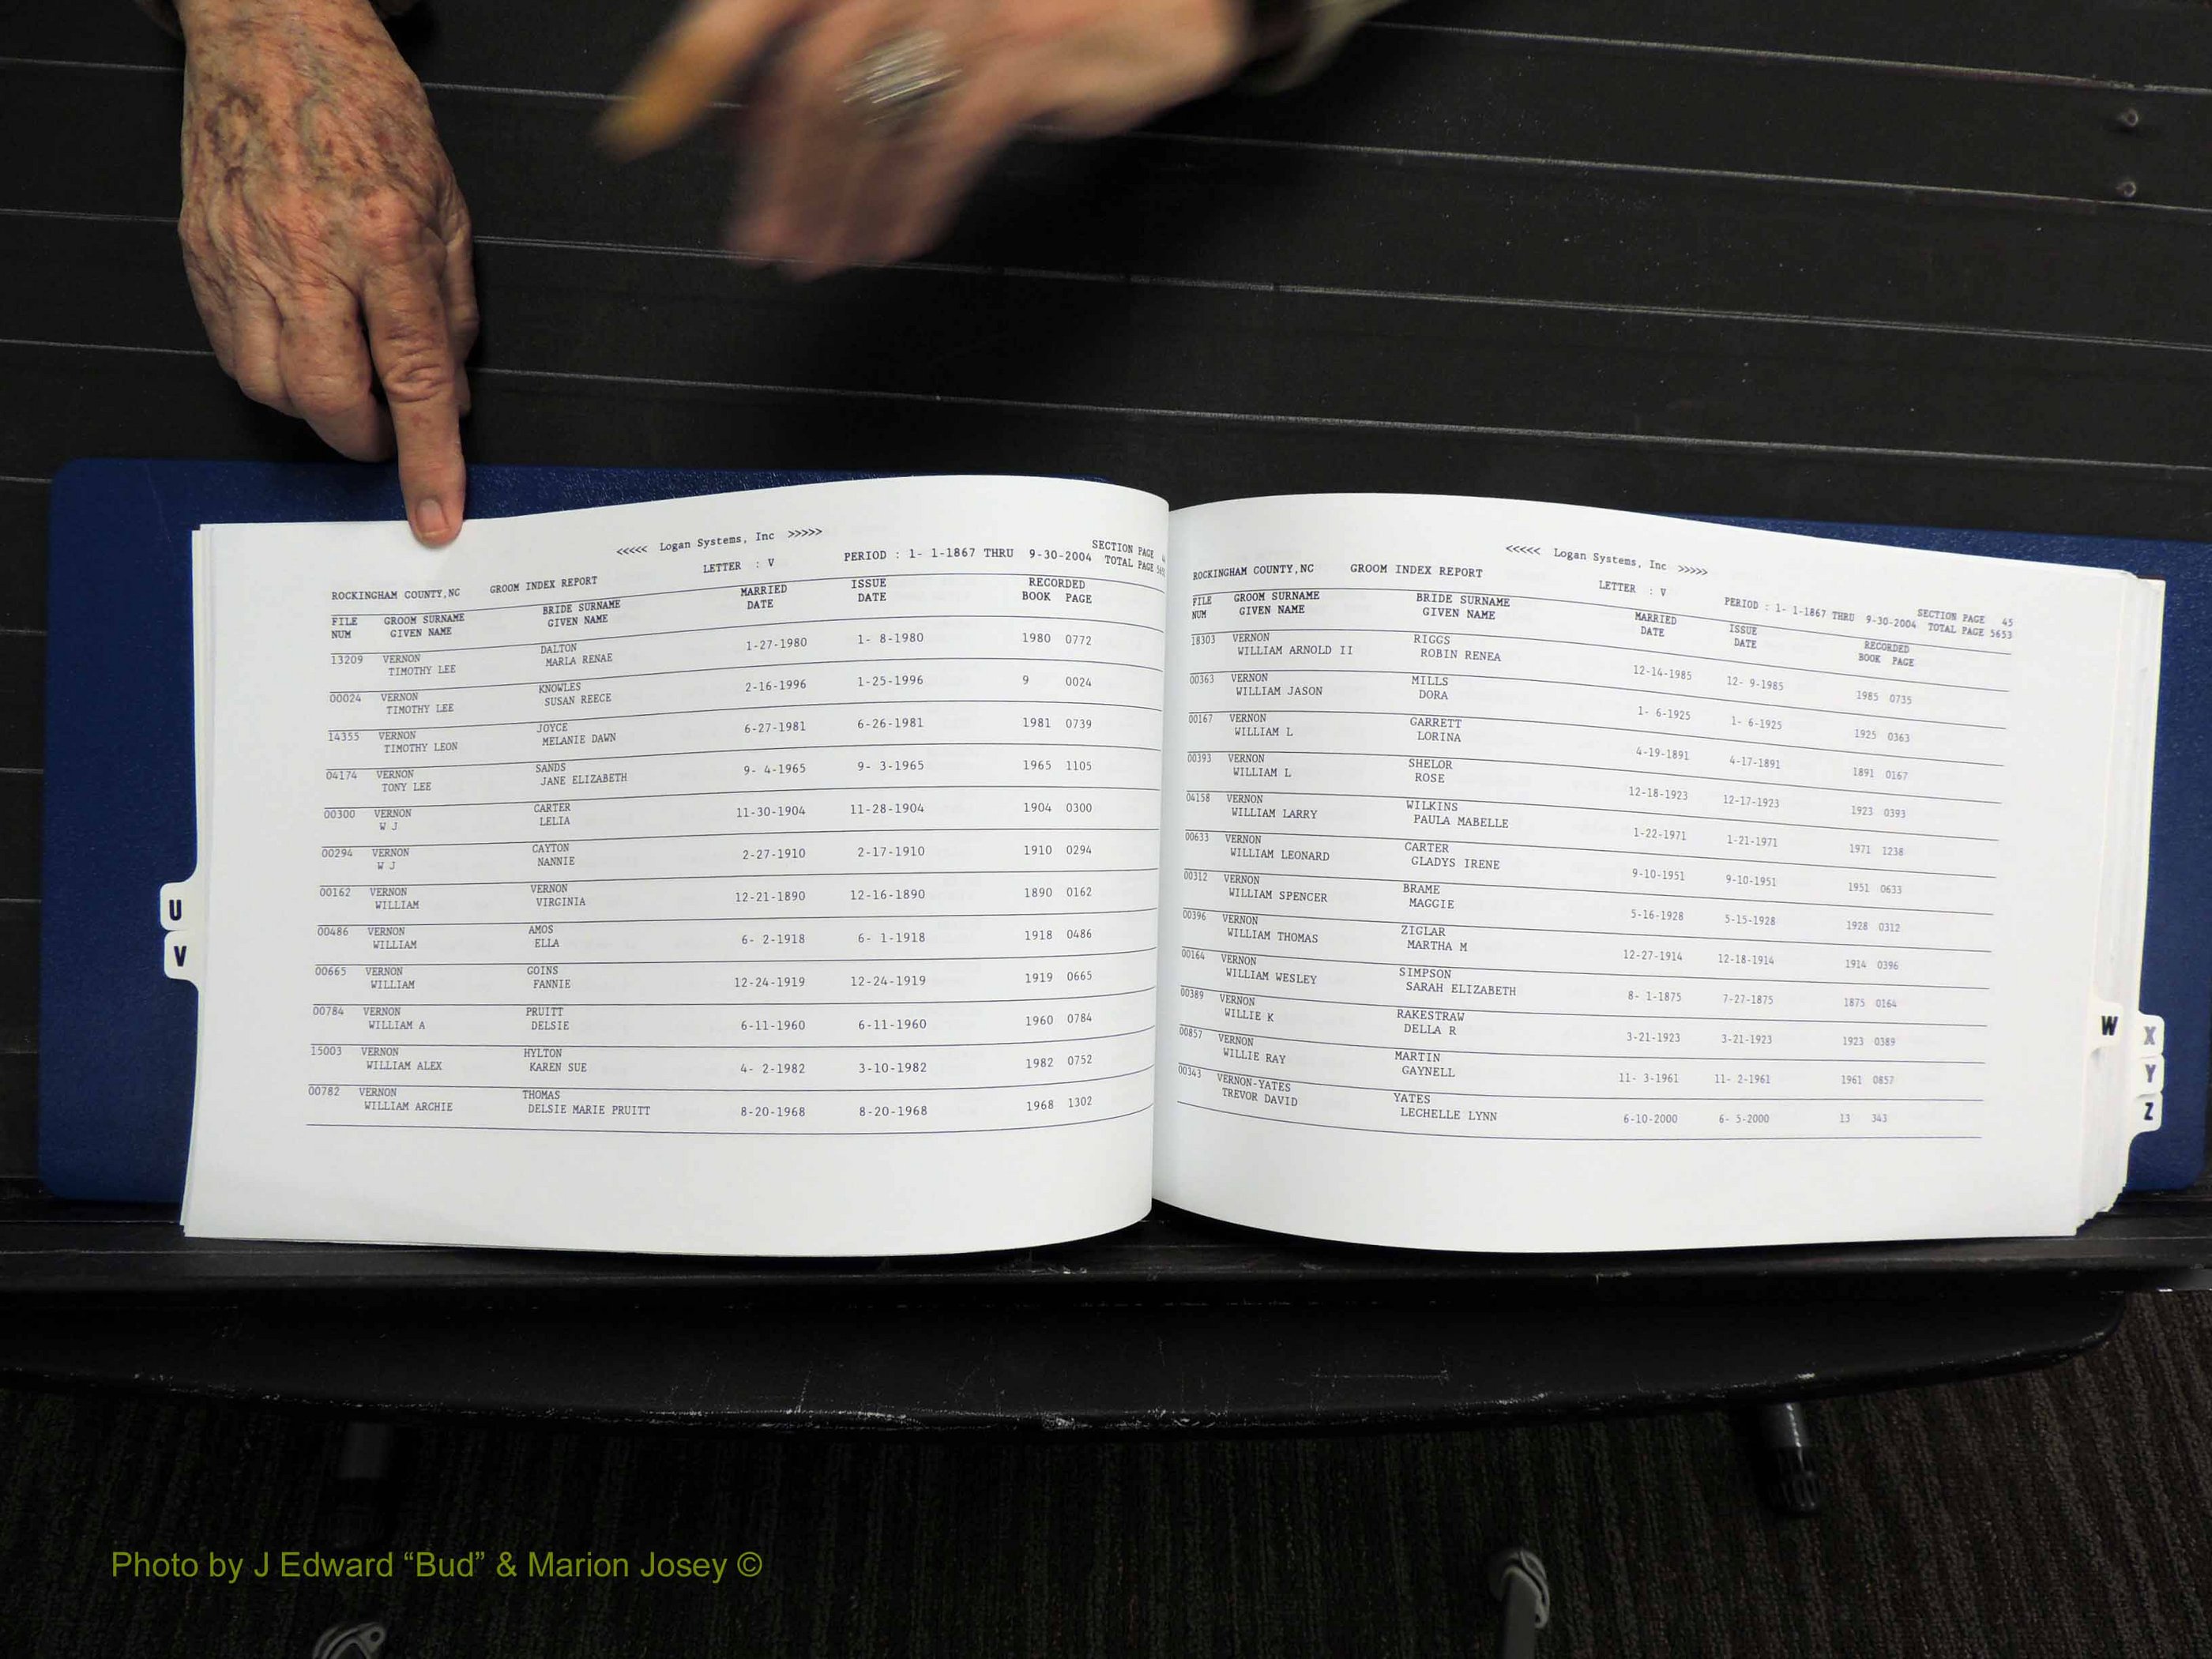 <<<<< Logan Systems, Inc >>>>>
ROCKINGHAM COUNTY,NC GROOM INDEX REPORT LETTER : V PERIOD : 1- 1-1867 THRU 9-30-2004 SECTION PAGE
TOTAL PAGE
FILE GROOM SURNAME BRIDE SURNAME MARRIED ISSUE RECORDED
NUM GIVEN NAME GIVEN NAME DATE DATE BOOK PAGE
13209 VERNON DALTON 1-27-1980 1- 8-1980 1980 0772
TIMOTHY LEE MARLA RENAE
00024 VERNON KNOWLES 2-16-1996 1-25-1996 9 0024
TIMOTHY LEE SUSAN REECE
14355 VERNON JOYCE 6-27-1981 6-26-1981 1981 0739
TIMOTHY LEON MELANIE DAWN
04174 VERNON SANDS 9- 4-1965 9- 3-1965 1965 1105
TONY LEE JANE ELIZABETH
00300 VERNON CARTER 11-30-1904 11-28-1904 1904 0300
W J LELIA
00294 VERNON CAYTON 2-27-1910 2-17-1910 1910 0294
W J NANNIE
00162 VERNON VERNON 12-21-1890 12-16-1890 1890 0162
WILLIAM VIRGINIA
00486 VERNON AMOS 6- 2-1918 6- 1-1918 1918 0486
WILLIAM ELLA
00665 VERNON GOINS 12-24-1919 12-24-1919 1919 0665
WILLIAM FANNIE
00784 VERNON PRUITT 6-11-1960 6-11-1960 1960 0784
WILLIAM A DELSIE
15003 VERNON HYLTON 4- 2-1982 3-10-1982 1982 0752
WILLIAM ALEX KAREN SUE
00782 VERNON THOMAS 8-20-1968 8-20-1968 1968 1302
WILLIAM ARCHIE DELSIE MARIE PRUITT
U
V
<<<<< Logan Systems, Inc >>>>>
ROCKINGHAM COUNTY,NC GROOM INDEX REPORT LETTER : V PERIOD : 1- 1-1867 THRU 9-30-2004 SECTION PAGE 45
TOTAL PAGE 5653
FILE GROOM SURNAME BRIDE SURNAME MARRIED ISSUE RECORDED
NUM GIVEN NAME GIVEN NAME DATE DATE BOOK PAGE
18303 VERNON RIGGS 12-14-1985 12- 9-1985 1985 0735
WILLIAM ARNOLD II ROBIN RENEA
00363 VERNON MILLS 1- 6-1925 1- 6-1925 1925 0363
WILLIAM JASON DORA
00167 VERNON GARRETT 4-19-1891 4-17-1891 1891 0167
WILLIAM L LORINA
00393 VERNON SHELOR 12-18-1923 12-17-1923 1923 0393
WILLIAM L ROSE
04158 VERNON WILKINS 1-22-1971 1-21-1971 1971 1238
WILLIAM LARRY PAULA MABELLE
00633 VERNON CARTER 9-10-1951 9-10-1951 1951 0633
WILLIAM LEONARD GLADYS IRENE
00312 VERNON BRAME 5-16-1928 5-15-1928 1928 0312
WILLIAM SPENCER MAGGIE
00396 VERNON ZIGLAR 12-27-1914 12-18-1914 1914 0396
WILLIAM THOMAS MARTHA M
00164 VERNON SIMPSON 8- 1-1875 7-27-1875 1875 0164
WILLIAM WESLEY SARAH ELIZABETH
00389 VERNON RAKESTRAW 3-21-1923 3-21-1923 1923 0389
WILLIE K DELLA R
00857 VERNON MARTIN 11- 3-1961 11- 2-1961 1961 0857
WILLIE RAY GAYNELL
00343 VERNON-YATES YATES 6-10-2000 6- 5-2000 13 343
TREVOR DAVID LECHELLE LYNN
W
X
Y
Z
Photo by J Edward “Bud” & Marion Josey ©